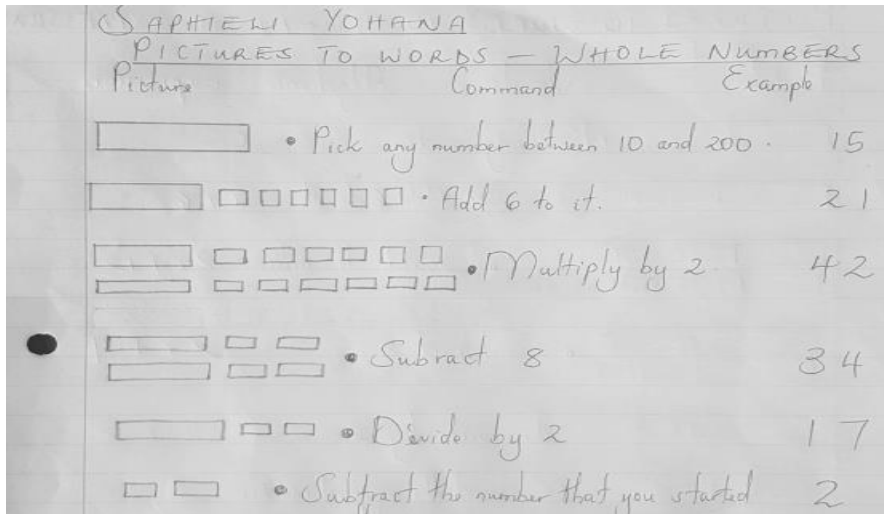 SAPHIELI YOHANA
PICTURES TO WORDS – WHOLE NUMBERS
Picture Command Example
• Pick any number between 10 and 200. 15
• Add 6 to it. 21
• Multiply by 2. 42
• Subract 8 34
• Devide by 2 17
• Subtract the number that you started 2